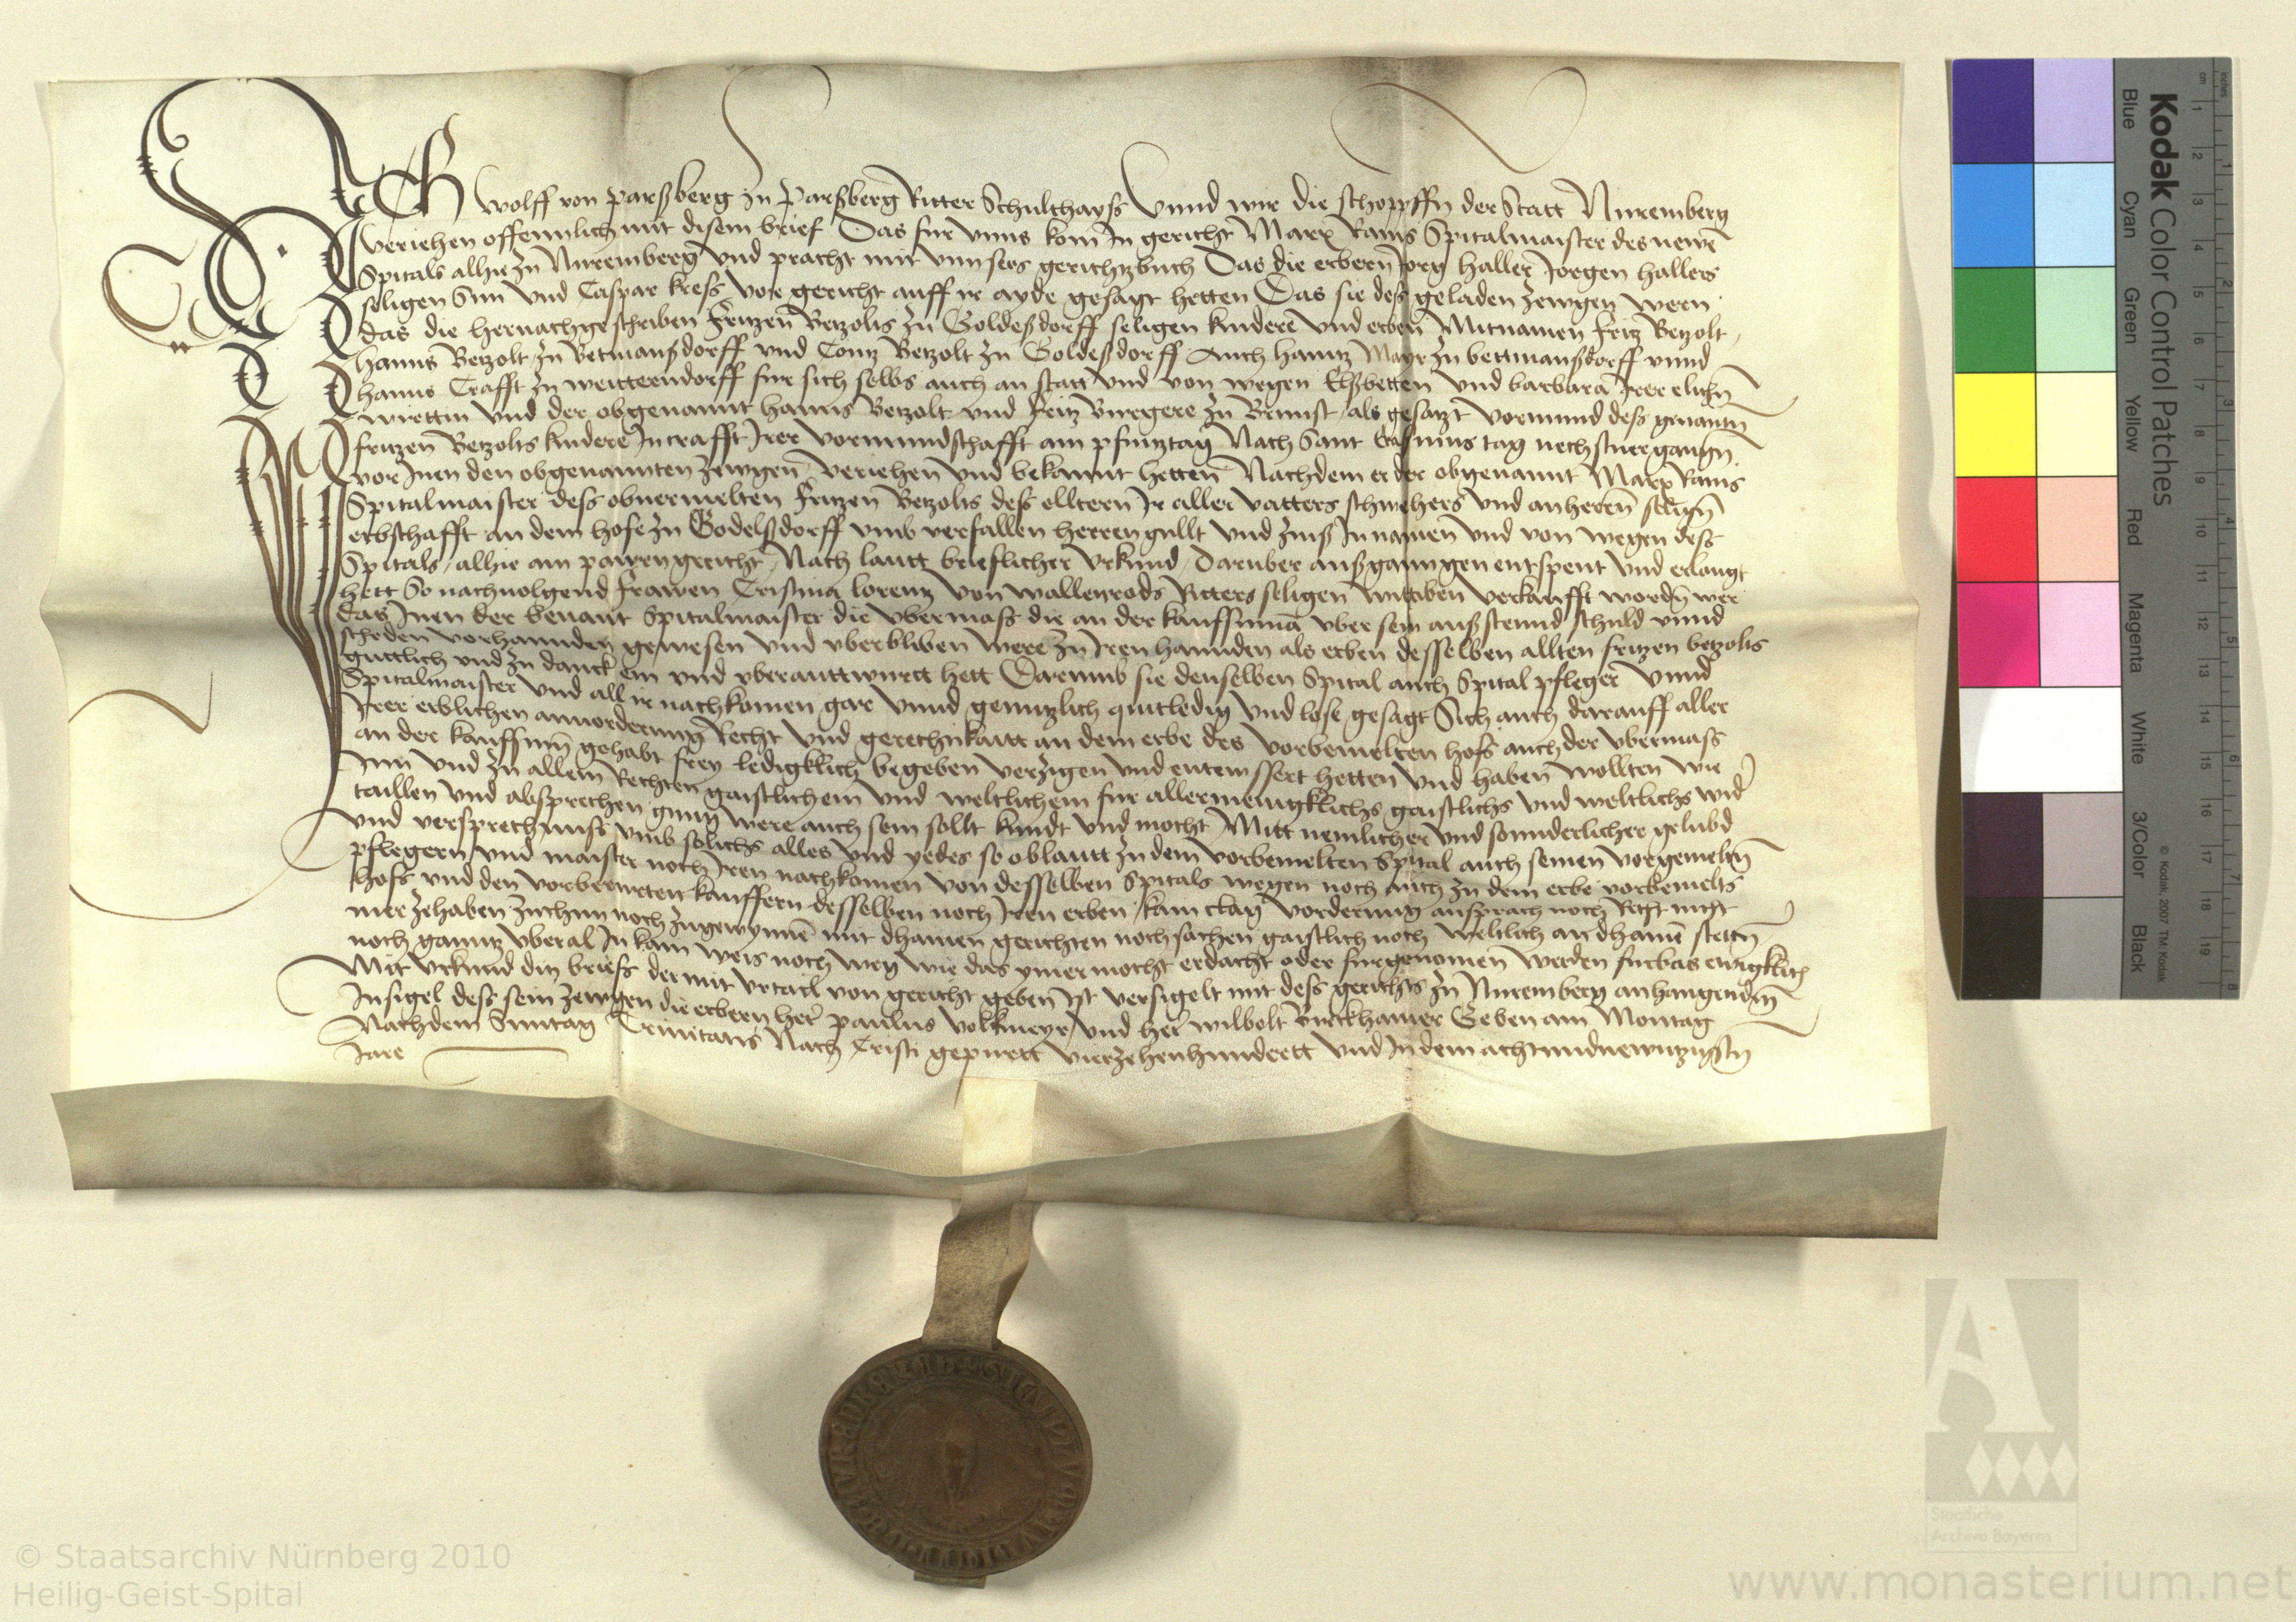 Ich Wolff von Parßberg zu Parßberg Ritter Schulthayss Vnnd wir die schopffn der Statt Nuremberg
veriehen offennlich mit disem brief Das fur vnns kom In gericht Marx Rams Spitalmaister des newē
Spitals alhie zu Nuremberg vnd pracht mit vnnsers gerichtzbuch Das die erbern Jorg Haller Jorgen Hallers
seligen Sun vnd Caspar Kress vor gericht auff ir ayde gesagt hetten Das sie deß geladen zewgen wern
das die hernachgeschriben Fritzen Betzolts zu Goldeßdorff seligen kindere vnd erben Mitnamen Fritz Betzolt
Hanns Betzolt zu Betmanßdorff vnd Contz Betzolt zu Goldeßdorff Auch Hanntz Mayr zu bettmanßdorff vnnd
Hanns Crafft zu weitterndorff fur sich selbs auch an statt vnd von wegen Elßbetten vnd barbara Irer elichn
wirttin vnd der obgenannt Hanns Betzolt vnd Fritz Burgere zu Brunst als gesatzt vormund deß genantn
Fritzen Betzolts kindere In crafft Irer vormundschafft am pfintztag Nach Sant Erasmus tag nechstuergangn
vor Inen den obgenannten zewgen veriehen vnd bekannt hetten Nachdem er der obgenannt Marx Rams
Spitalmaister deß obuermelten Fritzen Betzolts deß elltern Ir aller vatters schwehers vnd anheren selign
erbschafft an dem hofe zu Godelßdorff vmb verfallen herren gullt vnd zinß In namen vnd von wegen deß
Spitals alhie am pawrngericht Nach lautt brieflicher vrkund Daruber außganngen entspent vnd erlangt
hett So nachuolgend frawen Cristina lorentz von Wallenrods Ritters seligen wittiben verkaufft wordn wer
das Inen der benant Spitalmaister die vbermaß die an der kauffsumā vber sein außstennd schuld vnnd
scheden vorhannden gewesen vnd vberbliben were zu Iren hannden als erben desselben allten fritzen betzolts
guttlich vnd zu danck ein vnd vberanttwurtt hett Darumb sie denselben Spital auch Spital pfleger vnnd
Spitalmaister vnd all ir nachkomen gar vnnd genntzlich quitledig vnd lose gesagt Sich auch darauff aller
Irer erblichen anuorderung Recht vnd gerechtikaitt an dem erbe des vorbemelten hofs auch der vbermass
an der kauffsum gehabt frey ledigklich begeben verzigen vnd entewssert hetten vnd haben wollten wie
Inn vnd zu allem Rechten gaistlichem vnd weltlichem fur allermenigklichs gaistlichs vnd weltlichs
taillen vnd absprechen gnug were auch sein sollt kundt vnd mocht Mitt nemlicher vnd sonnderlicher gelubd
vnd versprechnuss vmb solichs alles vnd yedes so oblautt zu dem vorbemelten Spital auch seinen vorgemeltn
pflegern vnd maister noch Iren nachkomen von desselben Spitals wegen noch auch zu dem erbe vorbemelts
hofs vnd den vorberurten kauffern desselben noch Iren erben kain clag vordernng ansprach noch Recht nicht
mer zehaben zuchun noch zugewynnē mit dhainen gerichten noch sachen gaistlich noch weltlich an dhainē stettn
noch ganntz vberal In kain weis noch weg wie das ymer mocht erdacht oder furgenomen werden furbas ewigklich
Mit vrkund ditz briefs der mit vrtail von gericht geben ist versigelt mit deß gerichts zu Nuremberg anhangendm
Insigel deß sein zewgen die erbern her Paulus Volkmeyr vnd her Wilbolt Birckhamer Geben am Montag
Nachdem Suntag Trinitatis Nach Cristi gepurtt vierzehenhundertt vnd In dem achtundnewntzigstn
Jare
Kodak Color Control Patches
Blue Cyan Green Yellow Red Magenta White 3/Color Black
© Kodak, 2007 TM: Kodak
cm 1 2 3 4 5 6 7 8 9 10 11 12 13 14 15 16 17 18 19
inches 1 2 3 4 5 6 7 8
Staatliche
Archive Bayerns
© Staatsarchiv Nürnberg 2010
Heilig-Geist-Spital
www.monasterium.net